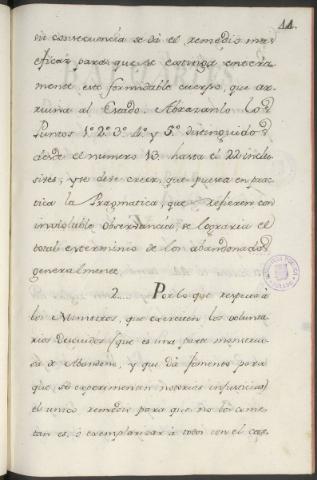 44.
su consecuencia se dá el remedio mas
eficaz para que se extinga entera
mente este formidable cuerpo, que ar
ruina al Estado. Abrazanlo los
Puntos 1º 2º 3º 4º y 5º distinguidos
desde el numero 13 hasta el 22 inclu
sives; y se debe creer, que puesta en prac
tica la Pragmatica, que refieren con
inviolable observancia, se lograria el
total exterminio de los abandonados
generalmente.
2.... Por lo que respecta á
los Ministros, que exercen los volunta
rios Descuidos (que es una parte monstruo
sa de Abandono, y que dá fomento para
que se experimentan notorias injusticias)
el unico remedio para que no los come
tan es, ó exemplarizar á todos con el cas